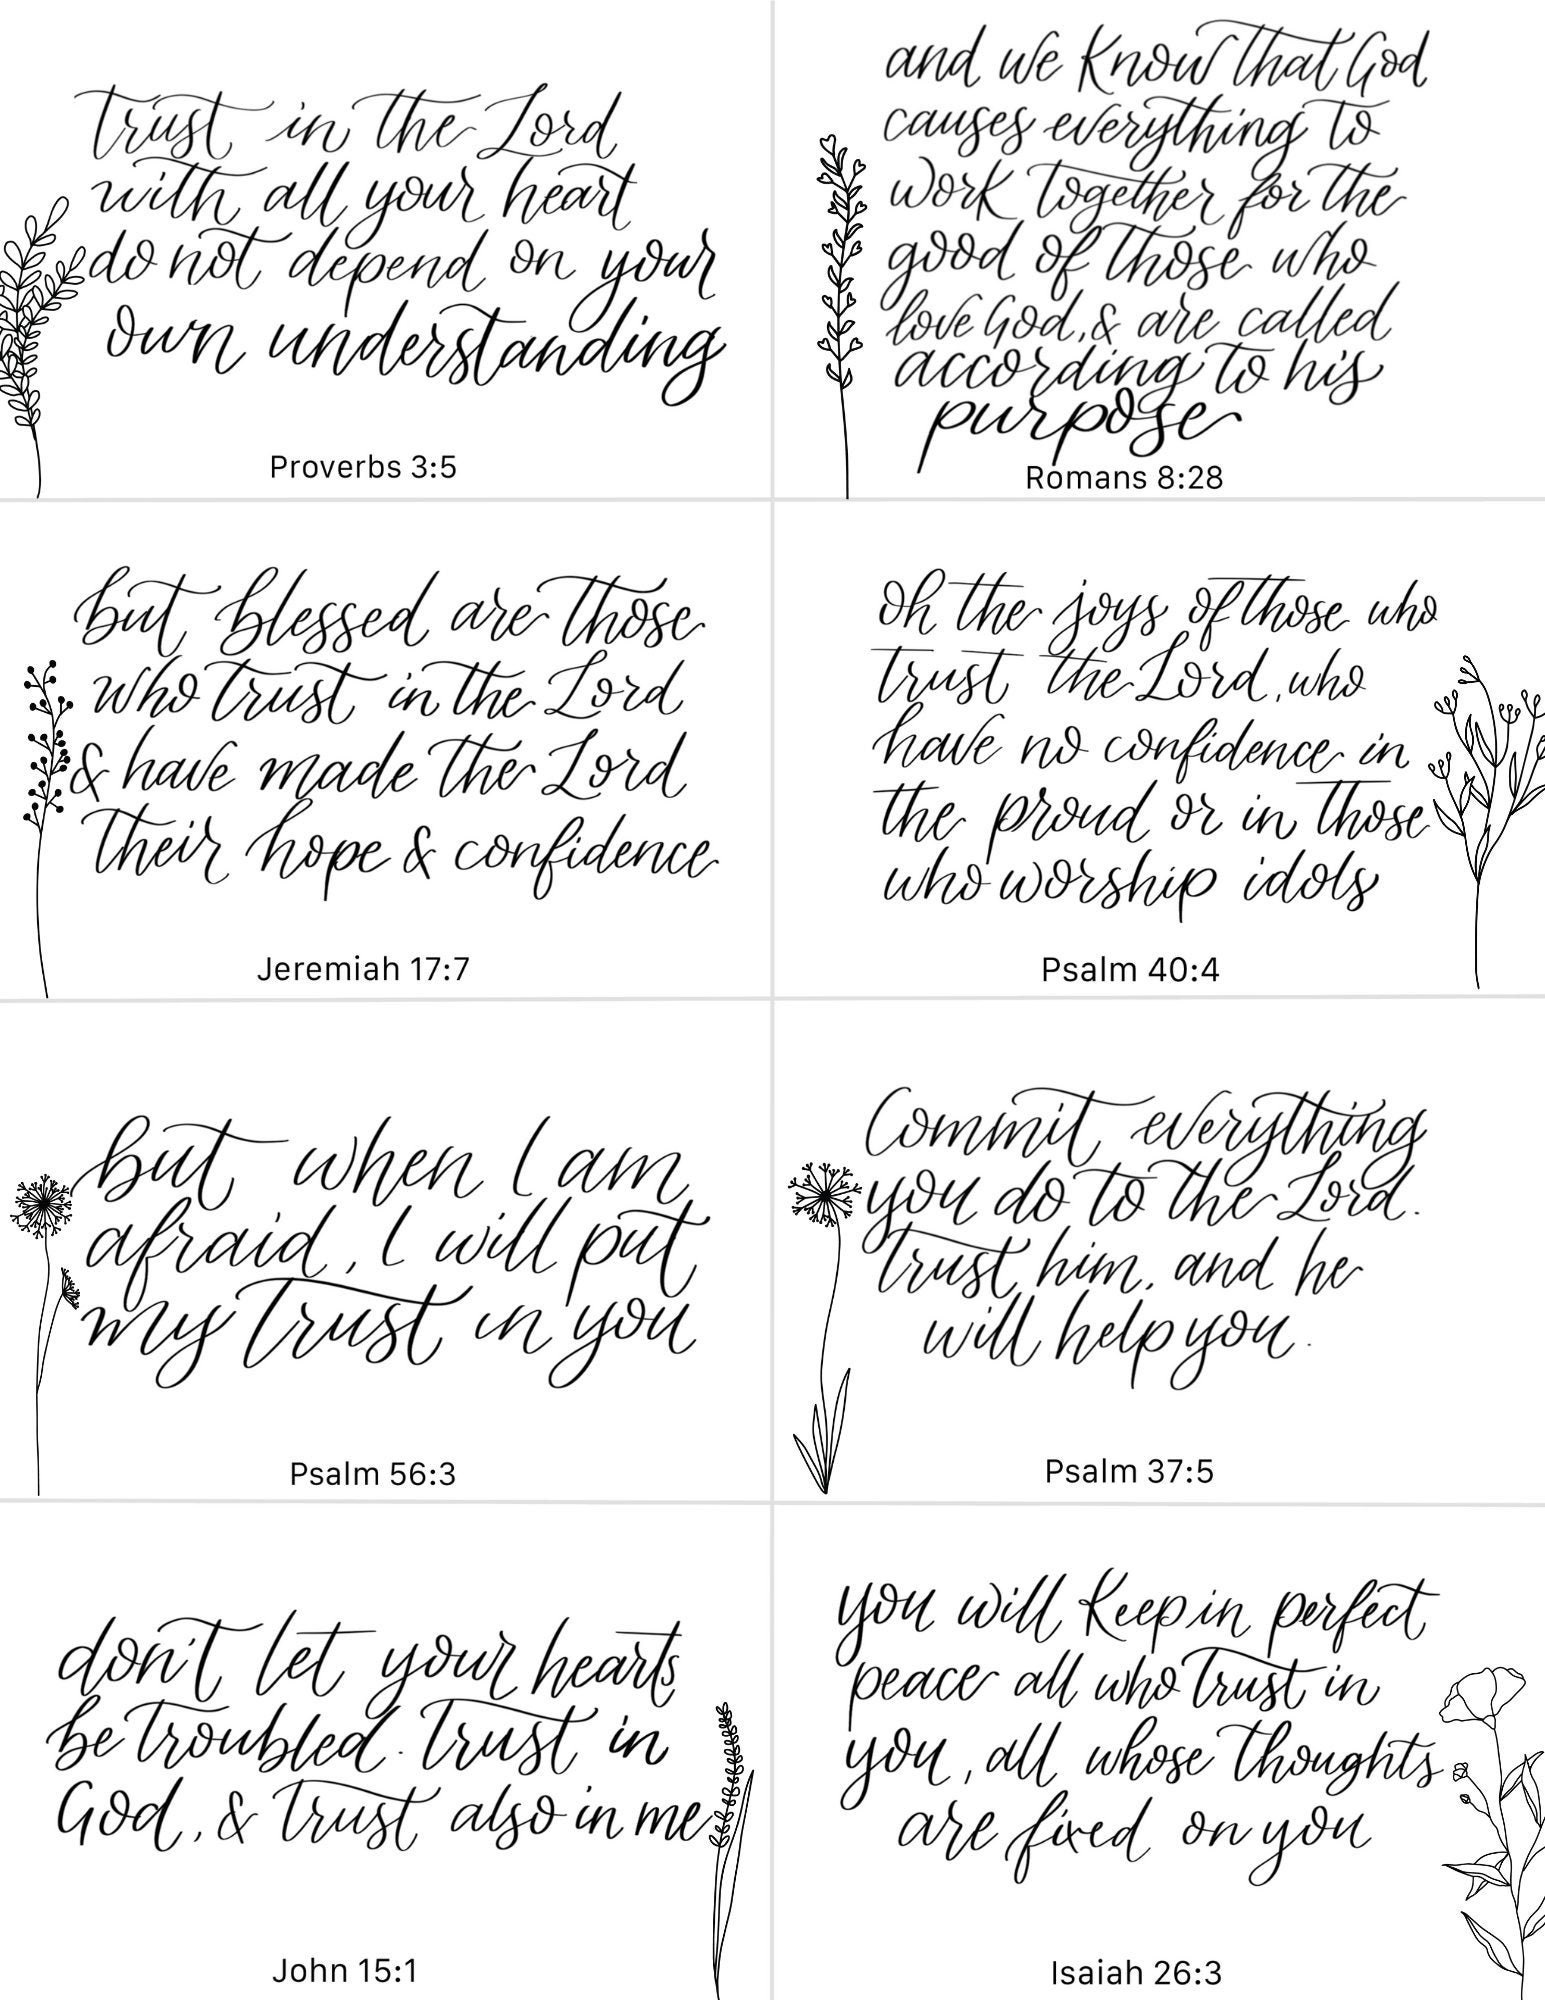 trust in the Lord
with all your heart
do not depend on your
own understanding
Proverbs 3:5
and we know that God
causes everything to
work together for the
good of those who
love God, & are called
according to his
purpose
Romans 8:28
but blessed are those
who trust in the Lord
& have made the Lord
their hope & confidence
Jeremiah 17:7
oh the joys of those who
trust the Lord, who
have no confidence in
the proud or in those
who worship idols
Psalm 40:4
but when I am
afraid, I will put
my trust in you
Psalm 56:3
Commit everything
you do to the Lord.
trust him, and he
will help you.
Psalm 37:5
don't let your hearts
be troubled. trust in
God, & trust also in me
John 15:1
you will keep in perfect
peace all who trust in
you, all whose thoughts
are fixed on you
Isaiah 26:3